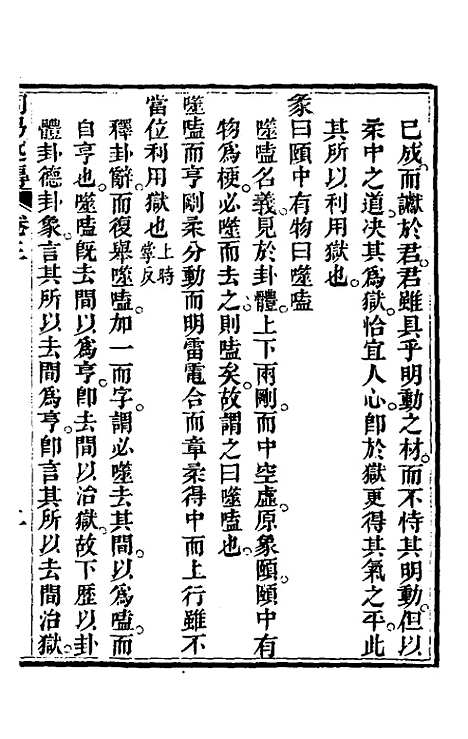 已成而讞於君君雖具乎明動之材而不恃其明動但以
柔中之道決其為獄恰宜人心卽於獄更得其氣之平此
其所以利用獄也
彖曰頤中有物曰噬嗑
噬嗑名義見於卦體上下兩剛而中空虛原象頤頤中有
物為梗必噬而去之則嗑矣故謂之曰噬嗑也
噬嗑而亨剛柔分動而明雷電合而章柔得中而上行雖不
當位利用獄也上時掌反
釋卦辭而復舉噬嗑加一而字謂必噬去其間以為嗑而
自亨也噬嗑旣去間以為亨卽去間以治獄故下歷以卦
體卦德卦象言其所以去間為亨卽言其所以去間治獄
卷三